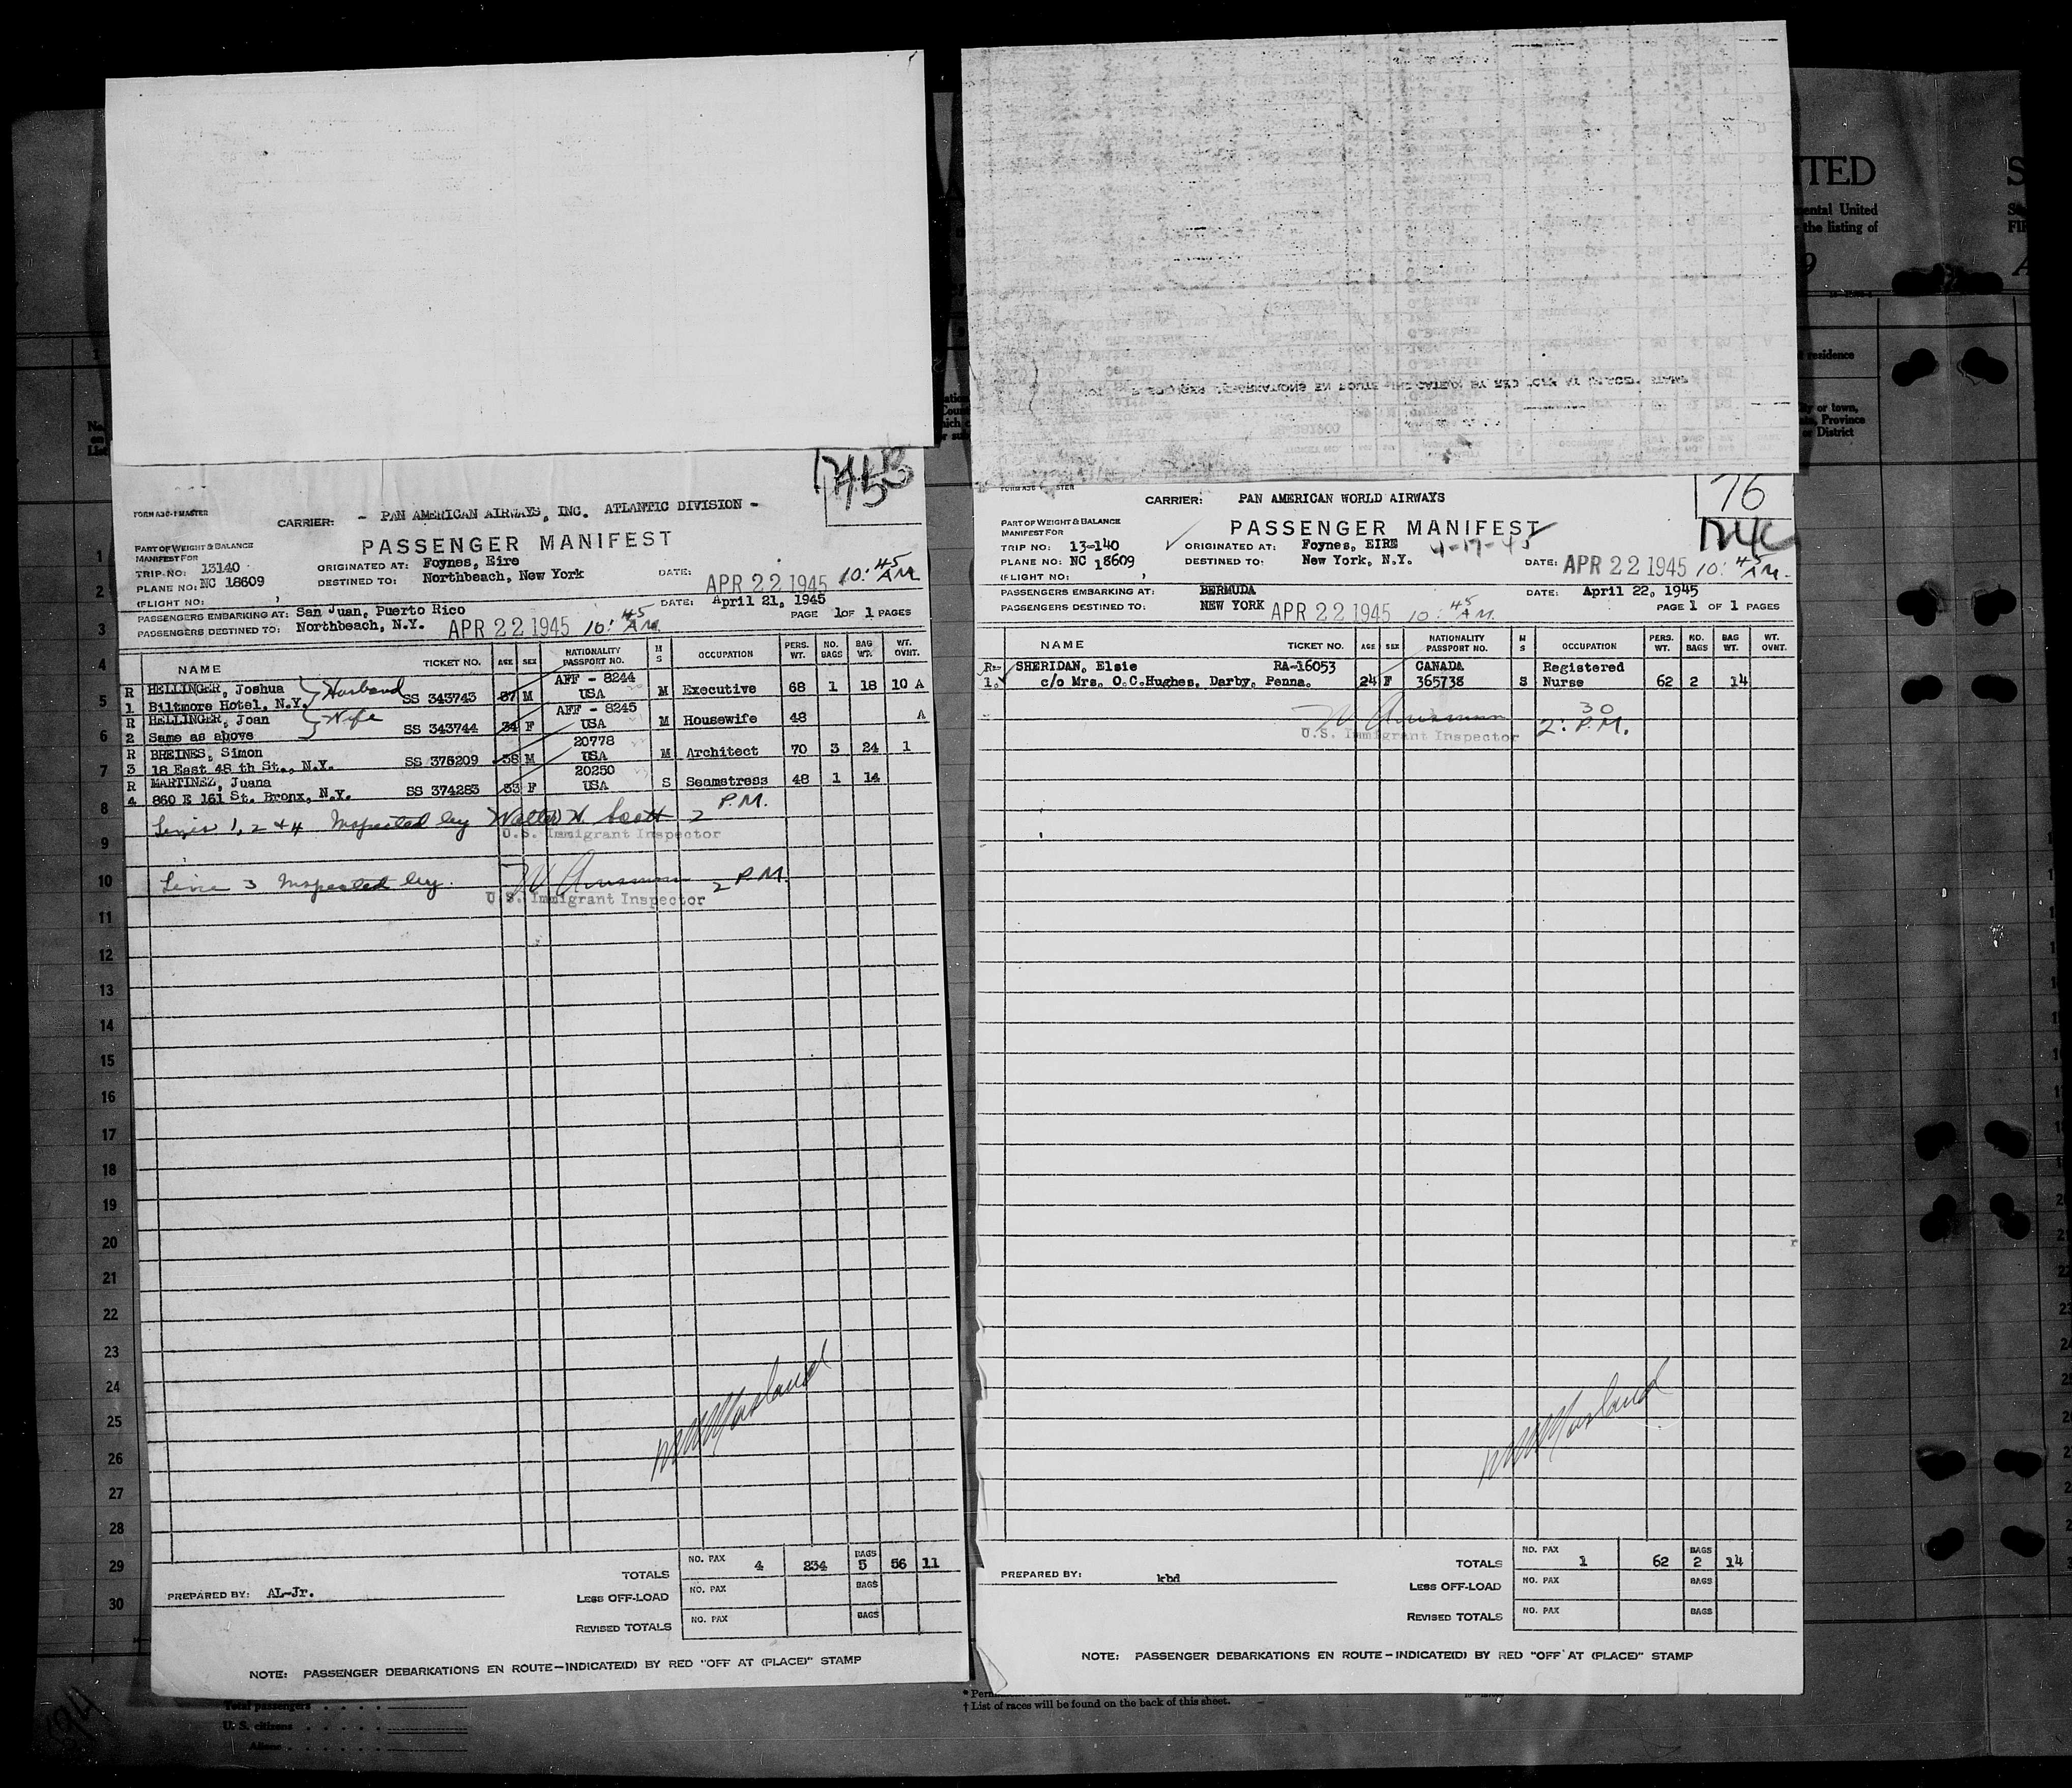 FORM A3C-1 MASTER
CARRIER: - PAN AMERICAN AIRWAYS, INC. ATLANTIC DIVISION -
PASSENGER MANIFEST
PART OF WEIGHT & BALANCE
MANIFEST FOR
TRIP NO: 13140
PLANE NO: NC 18609
(FLIGHT NO:
ORIGINATED AT: Foynes, Eire
DESTINED TO: Northbeach, New York
DATE: APR 22 1945 10:45 AM
PASSENGERS EMBARKING AT: San Juan, Puerto Rico
DATE: April 21, 1945
PASSENGERS DESTINED TO: Northbeach, N.Y. APR 22 1945 10:45 AM
PAGE 1 OF 1 PAGES
NAME TICKET NO. AGE SEX NATIONALITY PASSPORT NO. M S OCCUPATION PERS. WT. NO. BAGS BAG WT. WT. OVHT.
R HELLINGER, Joshua Husband AFF - 8244
1 Biltmore Hotel, N.Y. SS 343743 37 M USA M Executive 68 1 18 10 A
R HELLINGER, Joan Wife AFF - 8245
2 Same as above SS 343744 34 F USA M Housewife 48 A
R BREINES, Simon 20778
3 18 East 48 th St., N.Y. SS 376209 38 M USA M Architect 70 3 24 1
R MARTINEZ, Juana 20250
4 860 E 161 St. Bronx, N.Y. SS 374283 53 F USA S Seamstress 48 1 14
Lines 1, 2 & 4 Inspected by Walter H. Scott 2 P.M.
U.S. Immigrant Inspector
Line 3 Inspected by 2 P.M.
U.S. Immigrant Inspector
TOTALS NO. PAX 4 234 BAGS 5 56 11
PREPARED BY: AL-Jr.
LESS OFF-LOAD NO. PAX BAGS
REVISED TOTALS NO. PAX BAGS
NOTE: PASSENGER DEBARKATIONS EN ROUTE-INDICATE(D) BY RED "OFF AT (PLACE)" STAMP
76
CARRIER: PAN AMERICAN WORLD AIRWAYS
PASSENGER MANIFEST
PART OF WEIGHT & BALANCE
MANIFEST FOR
TRIP NO: 13-140
PLANE NO: NC 18609
(FLIGHT NO:
ORIGINATED AT: Foynes, EIRE 4-17-45
DESTINED TO: New York, N.Y.
DATE: APR 22 1945 10:45 AM.
PASSENGERS EMBARKING AT: BERMUDA
DATE: April 22, 1945
PASSENGERS DESTINED TO: NEW YORK APR 22 1945 10:45 AM.
PAGE 1 OF 1 PAGES
NAME TICKET NO. AGE SEX NATIONALITY PASSPORT NO. M S OCCUPATION PERS. WT. NO. BAGS BAG WT. WT. OVHT.
R- SHERIDAN, Elsie RA-16053 CANADA Registered
1. c/o Mrs. O.C.Hughes, Darby, Penna. 24 F 365738 S Nurse 62 2 14
U.S. Immigrant Inspector 2:30 P.M.
TOTALS NO. PAX 1 62 BAGS 2 14
PREPARED BY: kbd
LESS OFF-LOAD NO. PAX BAGS
REVISED TOTALS NO. PAX BAGS
NOTE: PASSENGER DEBARKATIONS EN ROUTE-INDICATE(D) BY RED "OFF AT (PLACE)" STAMP
1
2
3
4
5
6
7
8
9
10
11
12
13
14
15
16
17
18
19
20
21
22
23
24
25
26
27
28
29
30
Total passengers
U. S. citizens
Aliens
† List of races will be found on the back of this sheet.